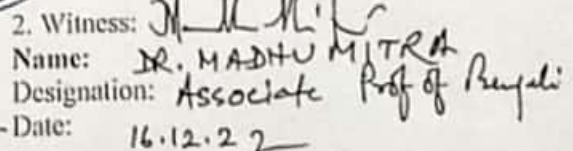 2. Witness:
Name: DR. MADHU MITRA
Designation: Associate Prof of Bengali
Date: 16.12.22